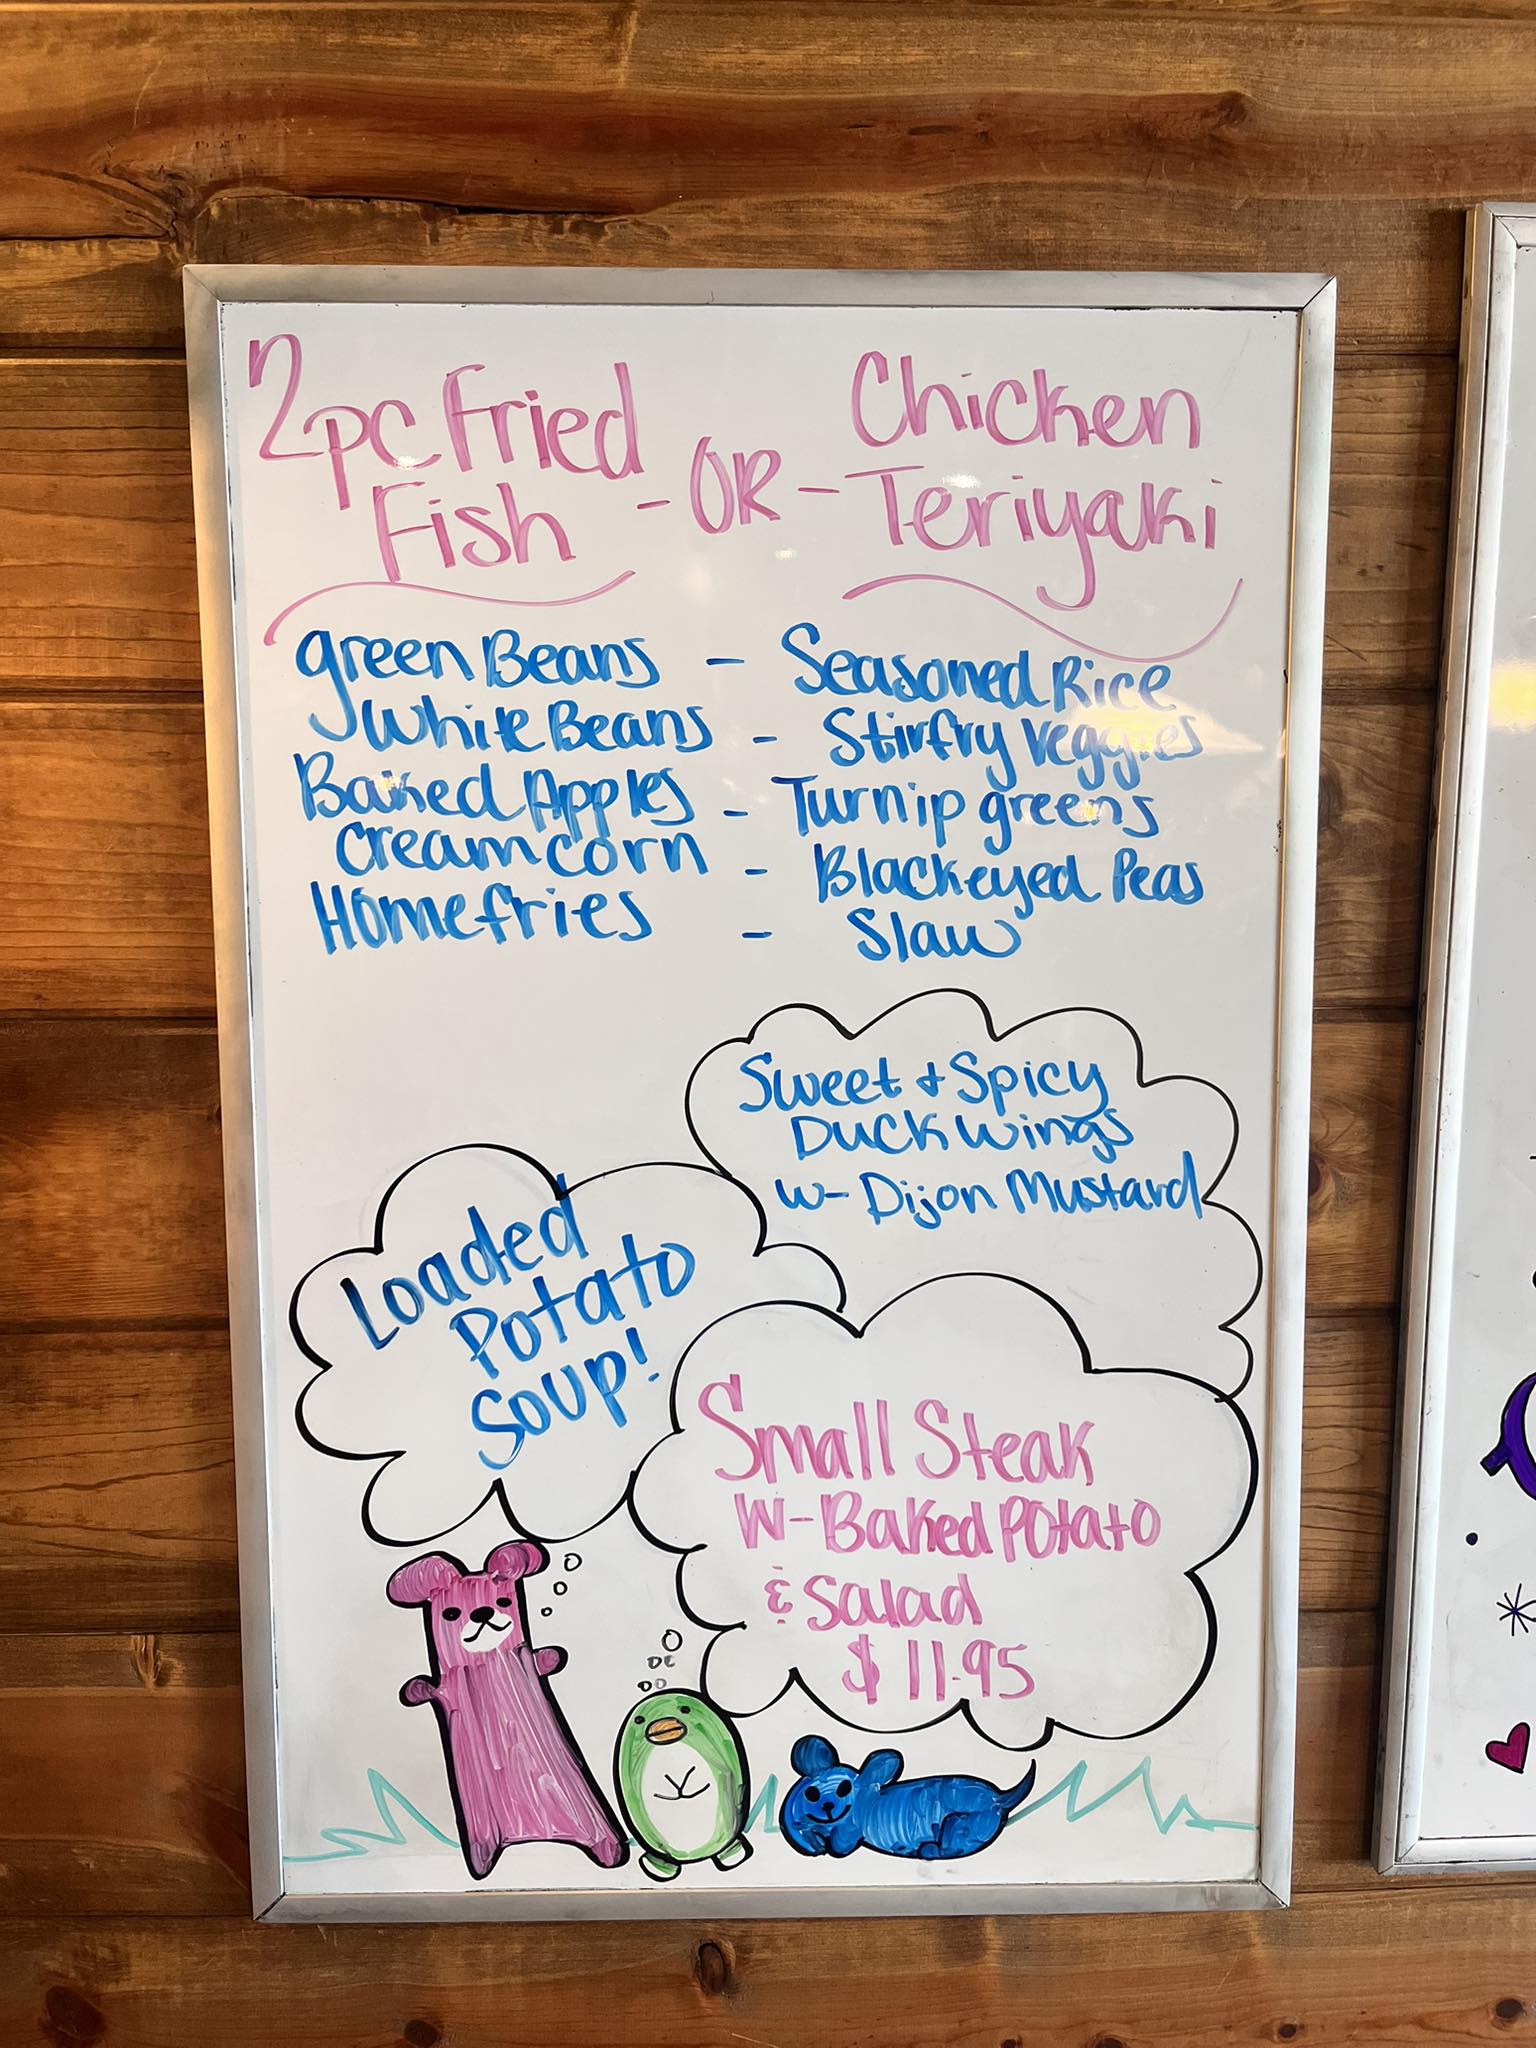 2pc Fried Fish - OR - Chicken Teriyaki
green Beans - Seasoned Rice
White Beans - Stirfry Veggies
Baked Apples - Turnip greens
Cream corn - Blackeyed Peas
Homefries - Slaw
Sweet + Spicy
Duck Wings
w- Dijon Mustard
Loaded
Potato
Soup!
Small Steak
W- Baked Potato
& Salad
$11.95